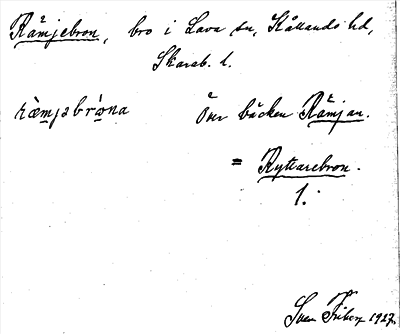 Råmjebron, bro i Lava sn, Kållands hd,
Skarab. l.
råmjəbrona Över bäcken Råmjan.
= Ryttarebron.
1.
Sven Friberg 1927.